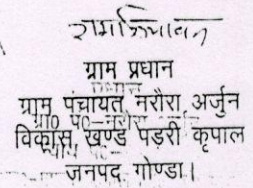 ग्राम प्रधान
ग्राम पंचायत नरौरा अर्जुन
विकास खण्ड पड़री कृपाल
जनपद गोण्डा।